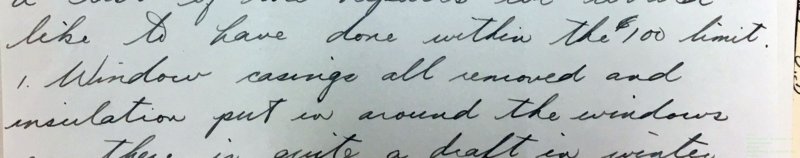 a list of the repairs we would
like to have done within the $100 limit.
1. Window casings all removed and
insulation put in around the windows
as there is quite a draft in winter